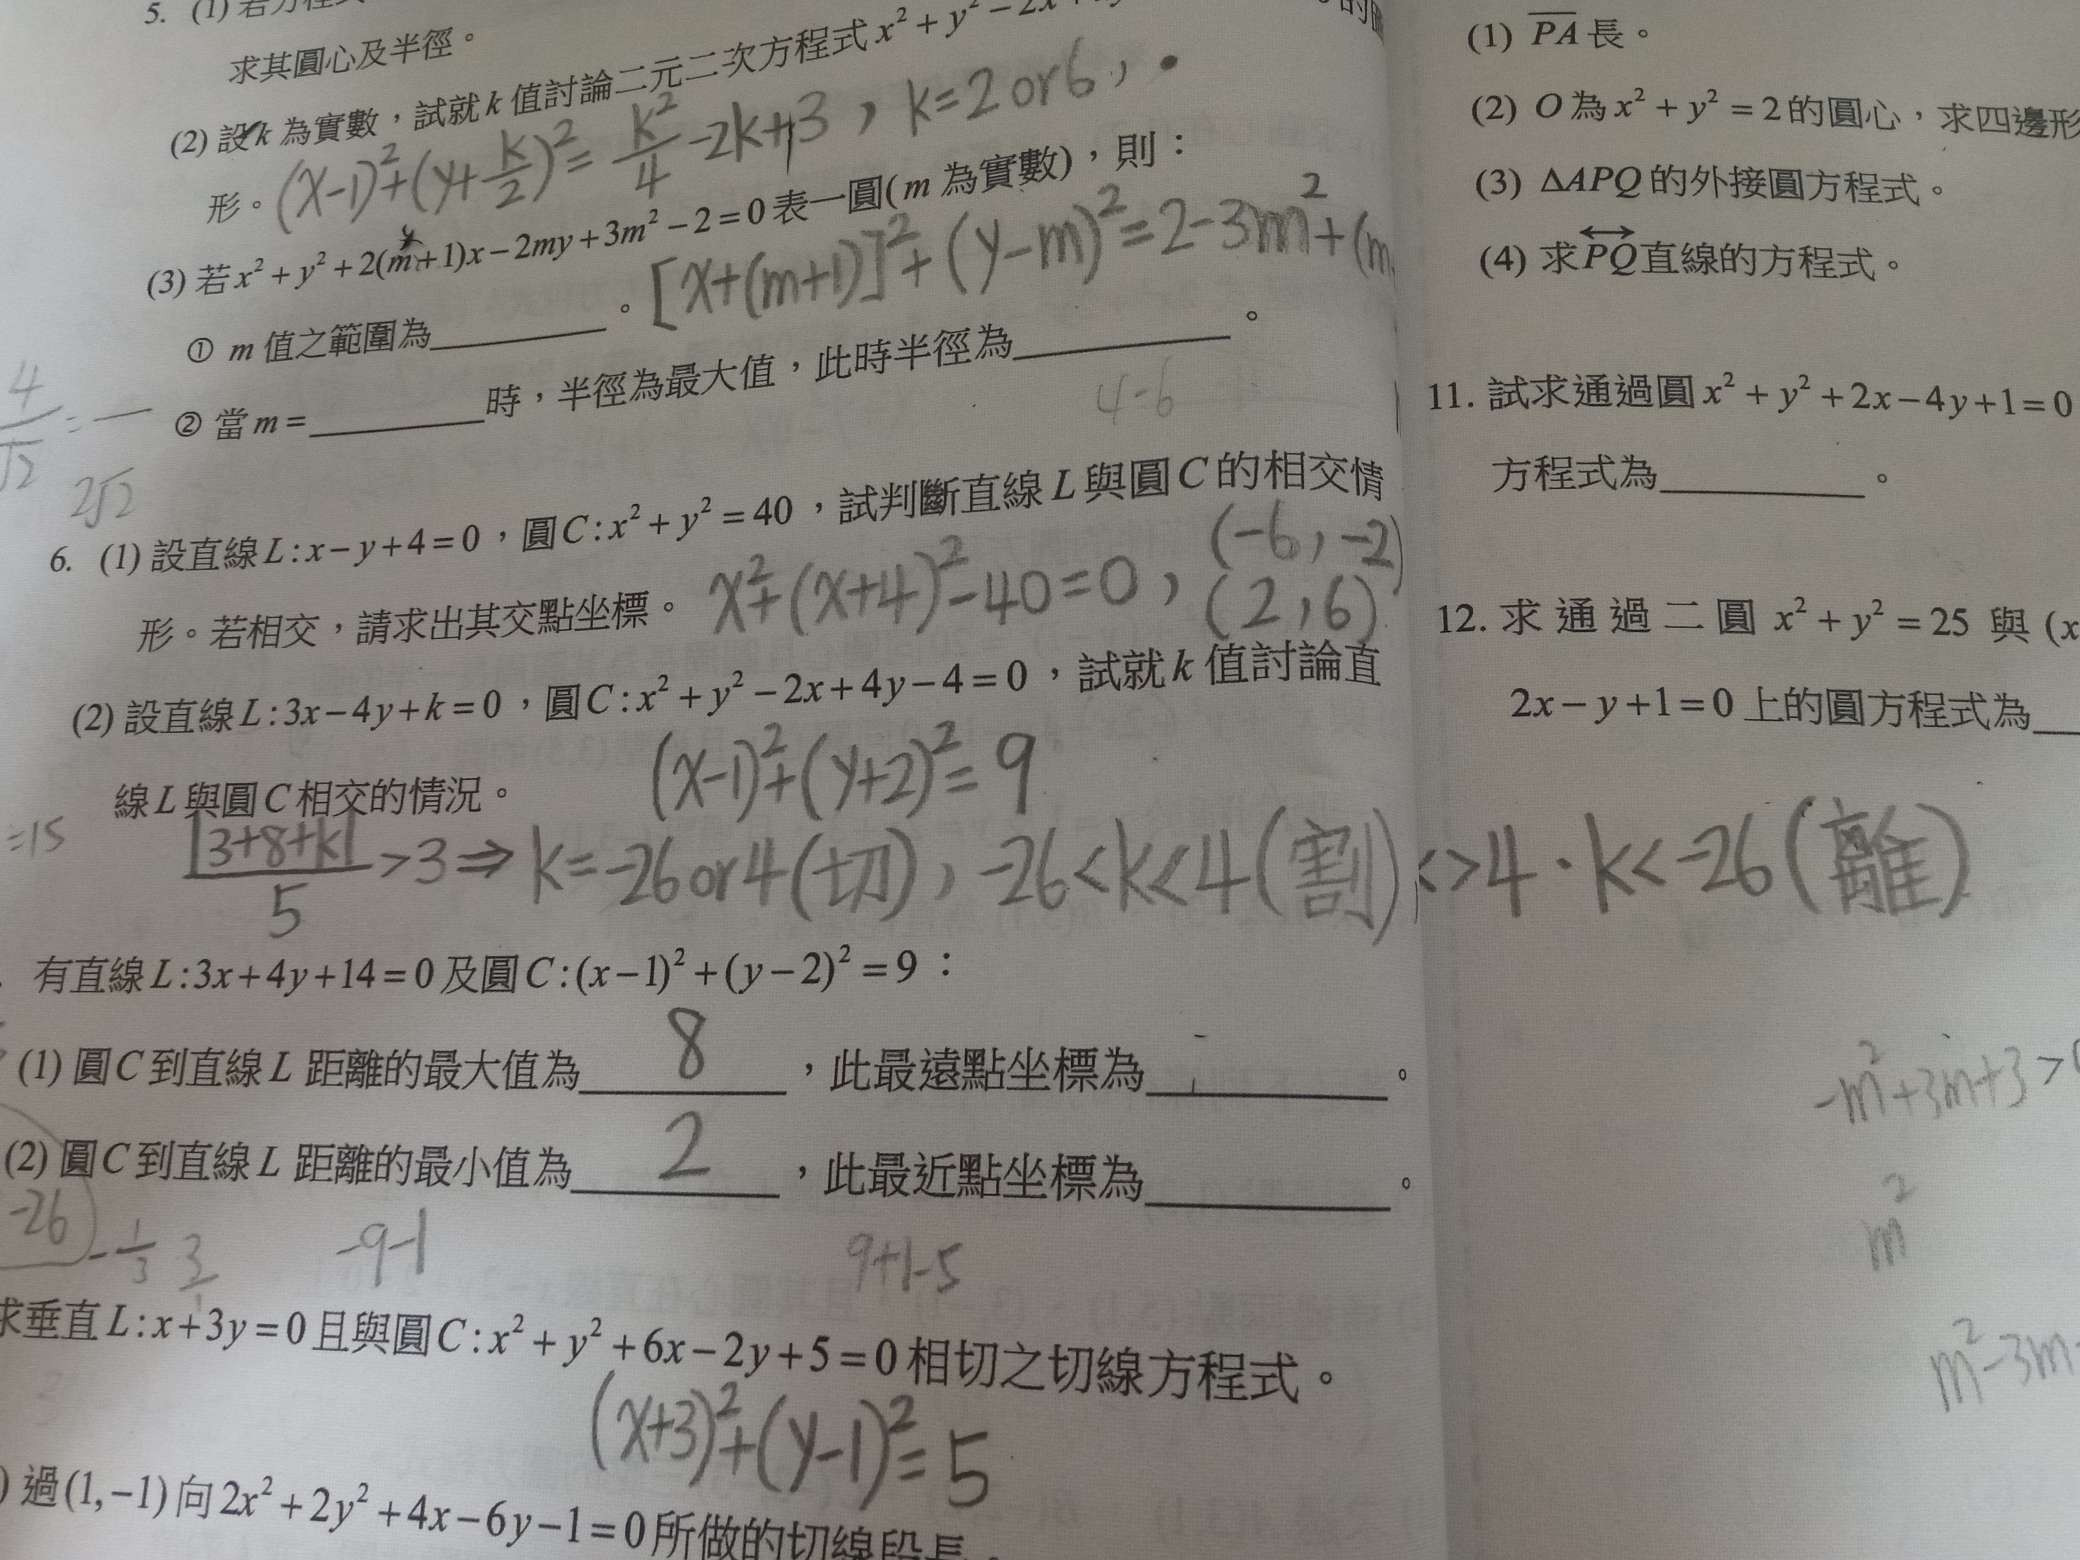 5. (1) 若方程式
求其圓心及半徑。
(2) 設k為實數，試就k值討論二元二次方程式x²+y²-2x
形。(x-1)²+(y+k/2)²=k²/4-2k+3，k=2or6，
(3) 若x²+y²+2(m+1)x-2my+3m²-2=0表一圓(m為實數)，則：
[x+(m+1)]²+(y-m)²=2-3m²+(m
① m值之範圍為________。
② 當m=________時，半徑為最大值，此時半徑為________。
4-6
4/√2=
2√2
6. (1) 設直線L:x-y+4=0，圓C:x²+y²=40，試判斷直線L與圓C的相交情
形。若相交，請求出其交點坐標。 x²+(x+4)²-40=0，(-6,-2)
(2,6)
(2) 設直線L:3x-4y+k=0，圓C:x²+y²-2x+4y-4=0，試就k值討論直
線L與圓C相交的情況。 (x-1)²+(y+2)²=9
=15
|3+8+k|/5>3⇒k=-26or4(切)，-26<k<4(割) k>4．k<-26(離)
有直線L:3x+4y+14=0及圓C:(x-1)²+(y-2)²=9：
(1) 圓C到直線L距離的最大值為 8 ，此最遠點坐標為________。
(2) 圓C到直線L距離的最小值為 2 ，此最近點坐標為________。
-26
-1/3
-9-1
9+1-5
求垂直L:x+3y=0且與圓C:x²+y²+6x-2y+5=0相切之切線方程式。
(x+3)²+(y-1)²=5
) 過(1,-1)向2x²+2y²+4x-6y-1=0所做的切線段長。
(1) PA長。
(2) O為x²+y²=2的圓心，求四邊形
(3) ΔAPQ的外接圓方程式。
(4) 求PQ直線的方程式。
11. 試求通過圓x²+y²+2x-4y+1=0
方程式為________。
12. 求通過二圓x²+y²=25與(x
2x-y+1=0上的圓方程式為
-m²+3m+3>0
m²
m²-3m-